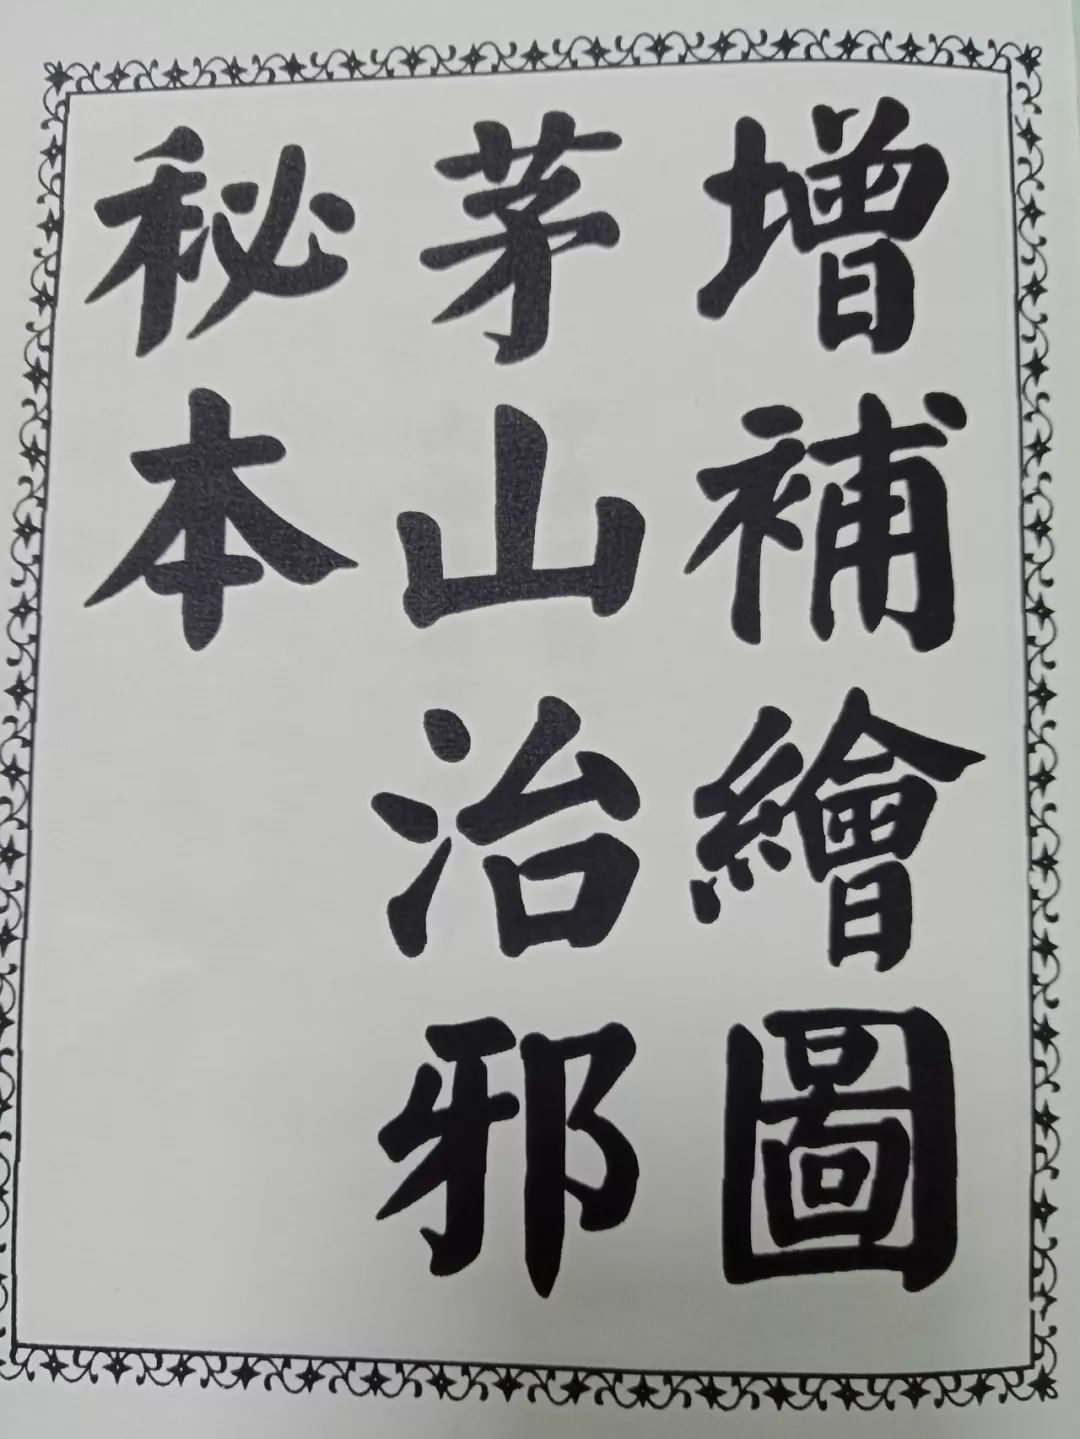 增補繪圖
茅山治邪
秘本